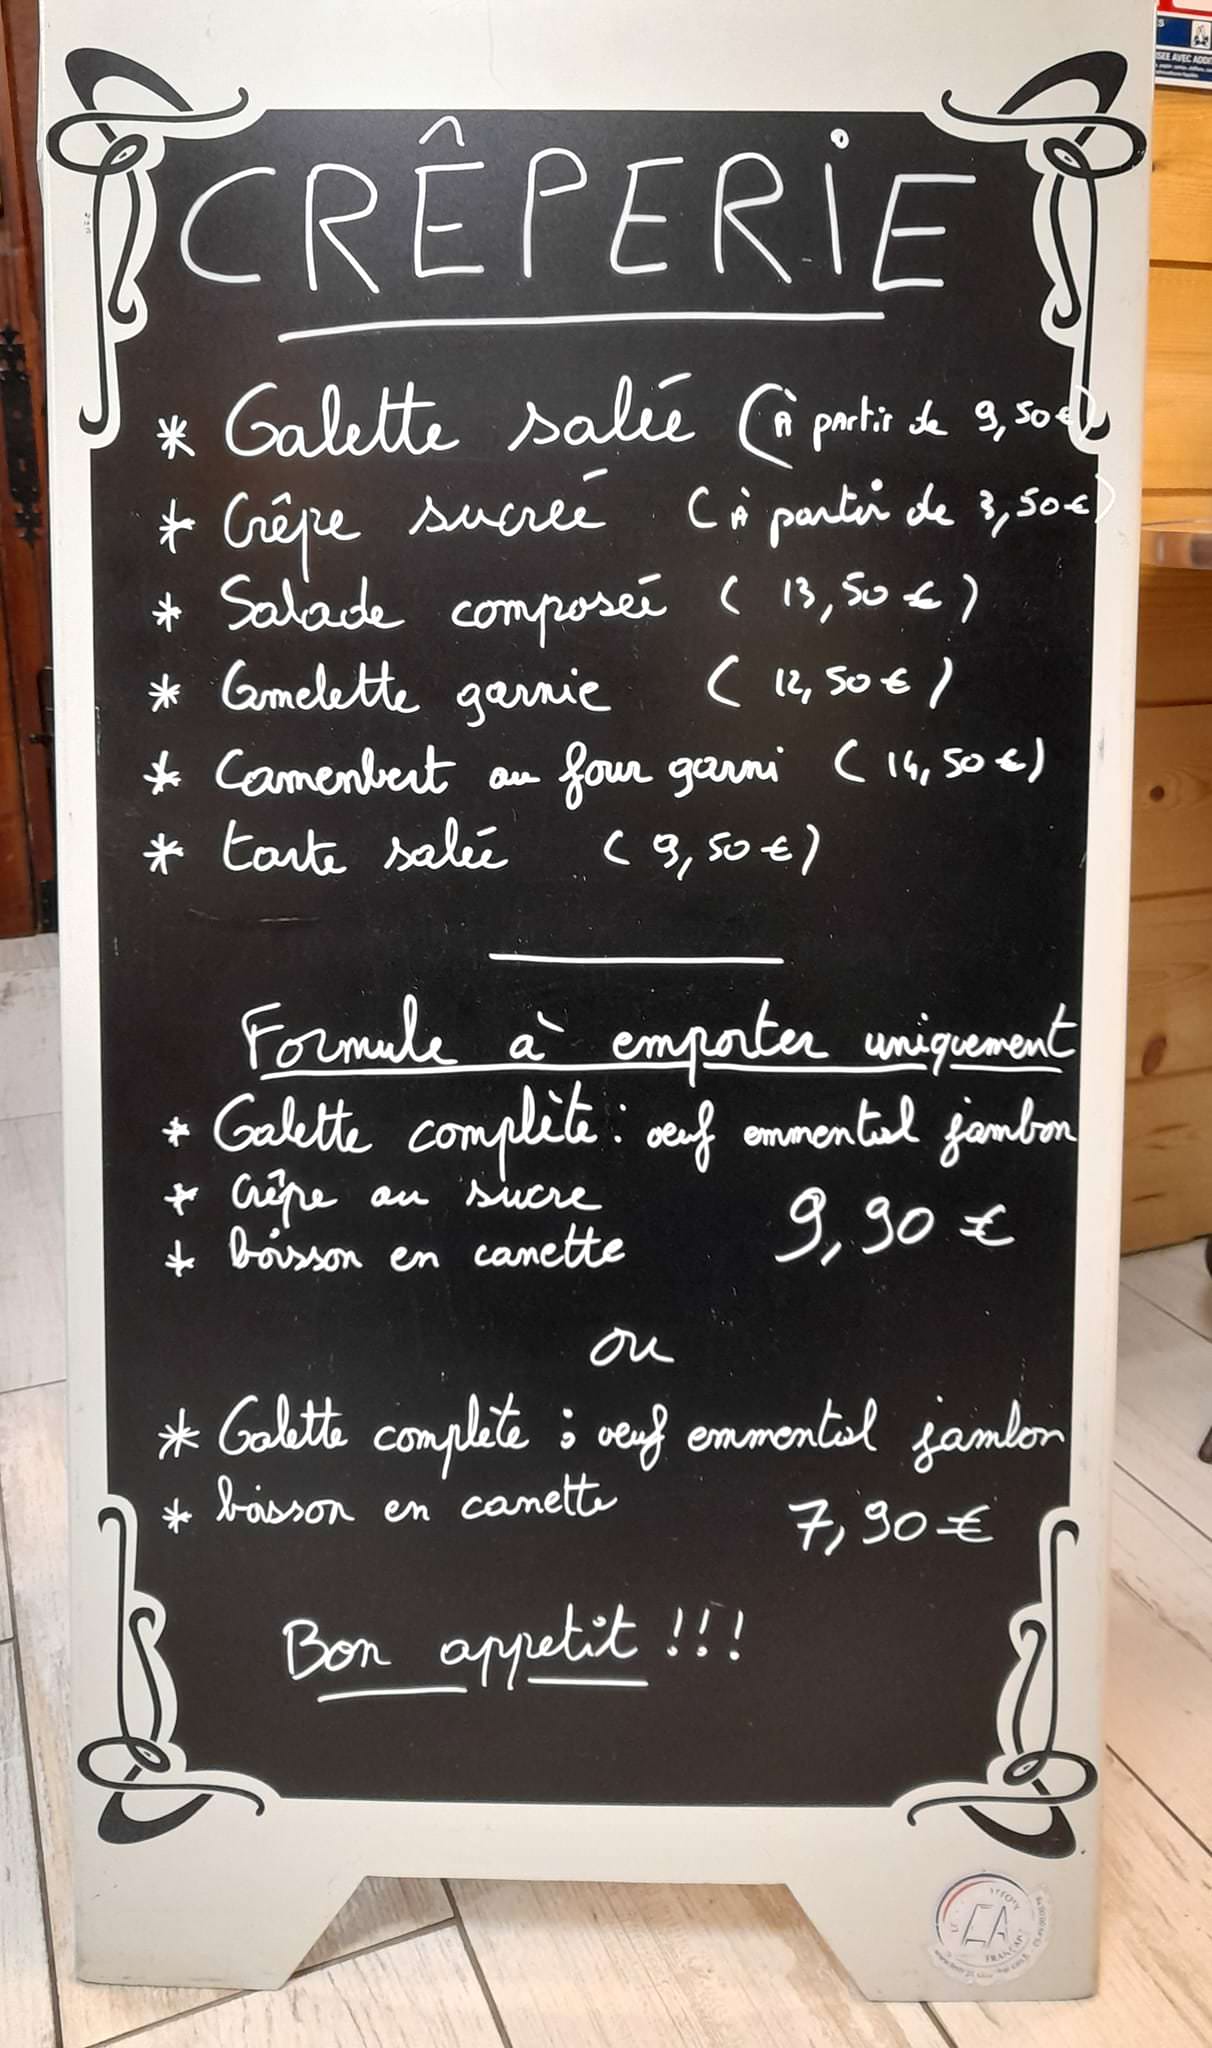 CRÊPERIE
* Galette salée (À partir de 9,50€)
* Crêpe sucrée (À partir de 3,50€)
* Salade composée (13,50€)
* Omelette garnie (12,50€)
* Camembert au four garni (14,50€)
* tarte salée (9,50€)
Formule à emporter uniquement
* Galette complète : oeuf emmental jambon
* Crêpe au sucre
* boisson en canette
9,90€
ou
* Galette complète : oeuf emmental jambon
* boisson en canette
7,90€
Bon appetit !!!
FRANÇAI